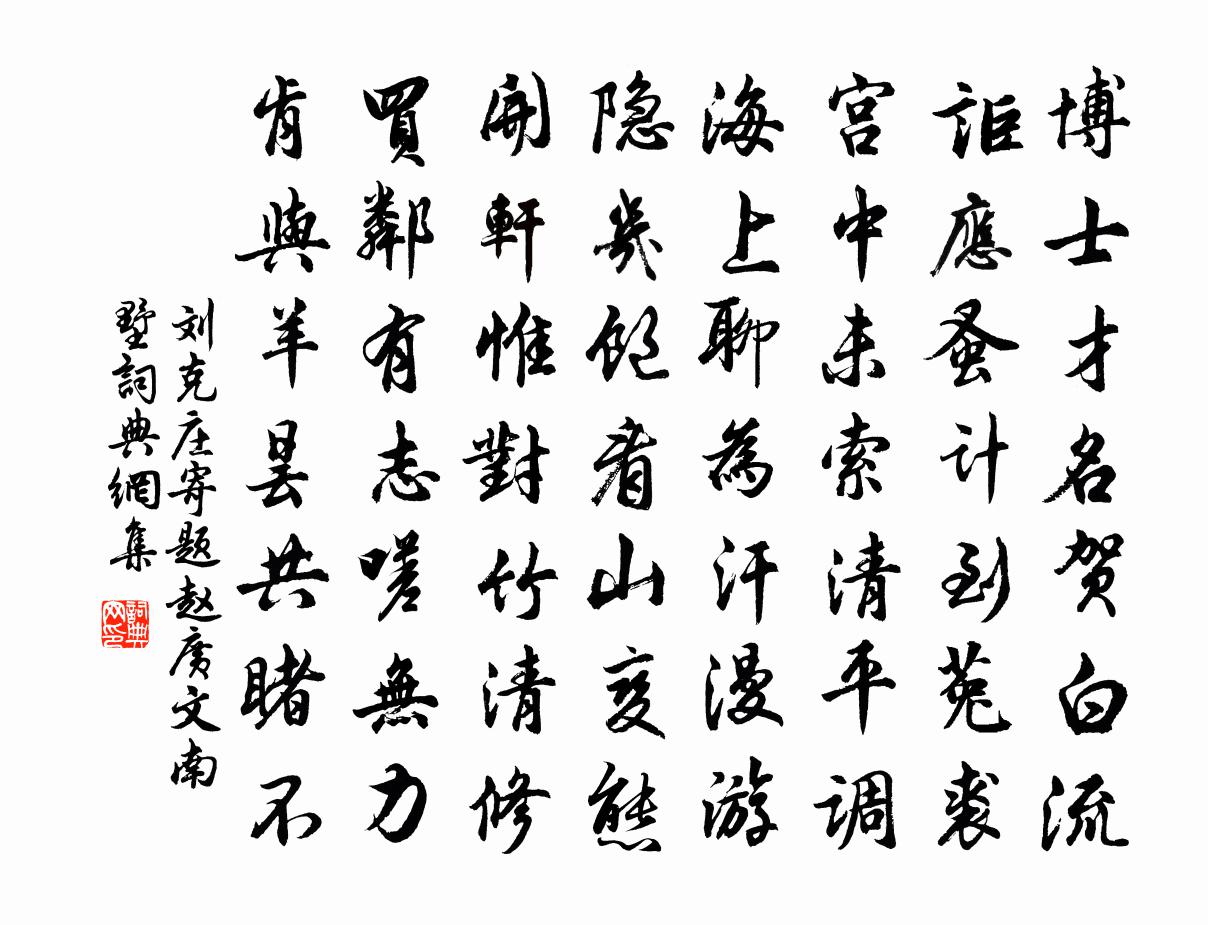 博士才名贺白流
詎應蚤计到菟裘
宫中未索清平调
海上聊為汗漫游
隐几饱看山变態
開軒惟對竹清修
買鄰有志嗟無力
肯與羊昙共睹不
刘克庄寄题赵广文南
墅詞典網集
詞典网印